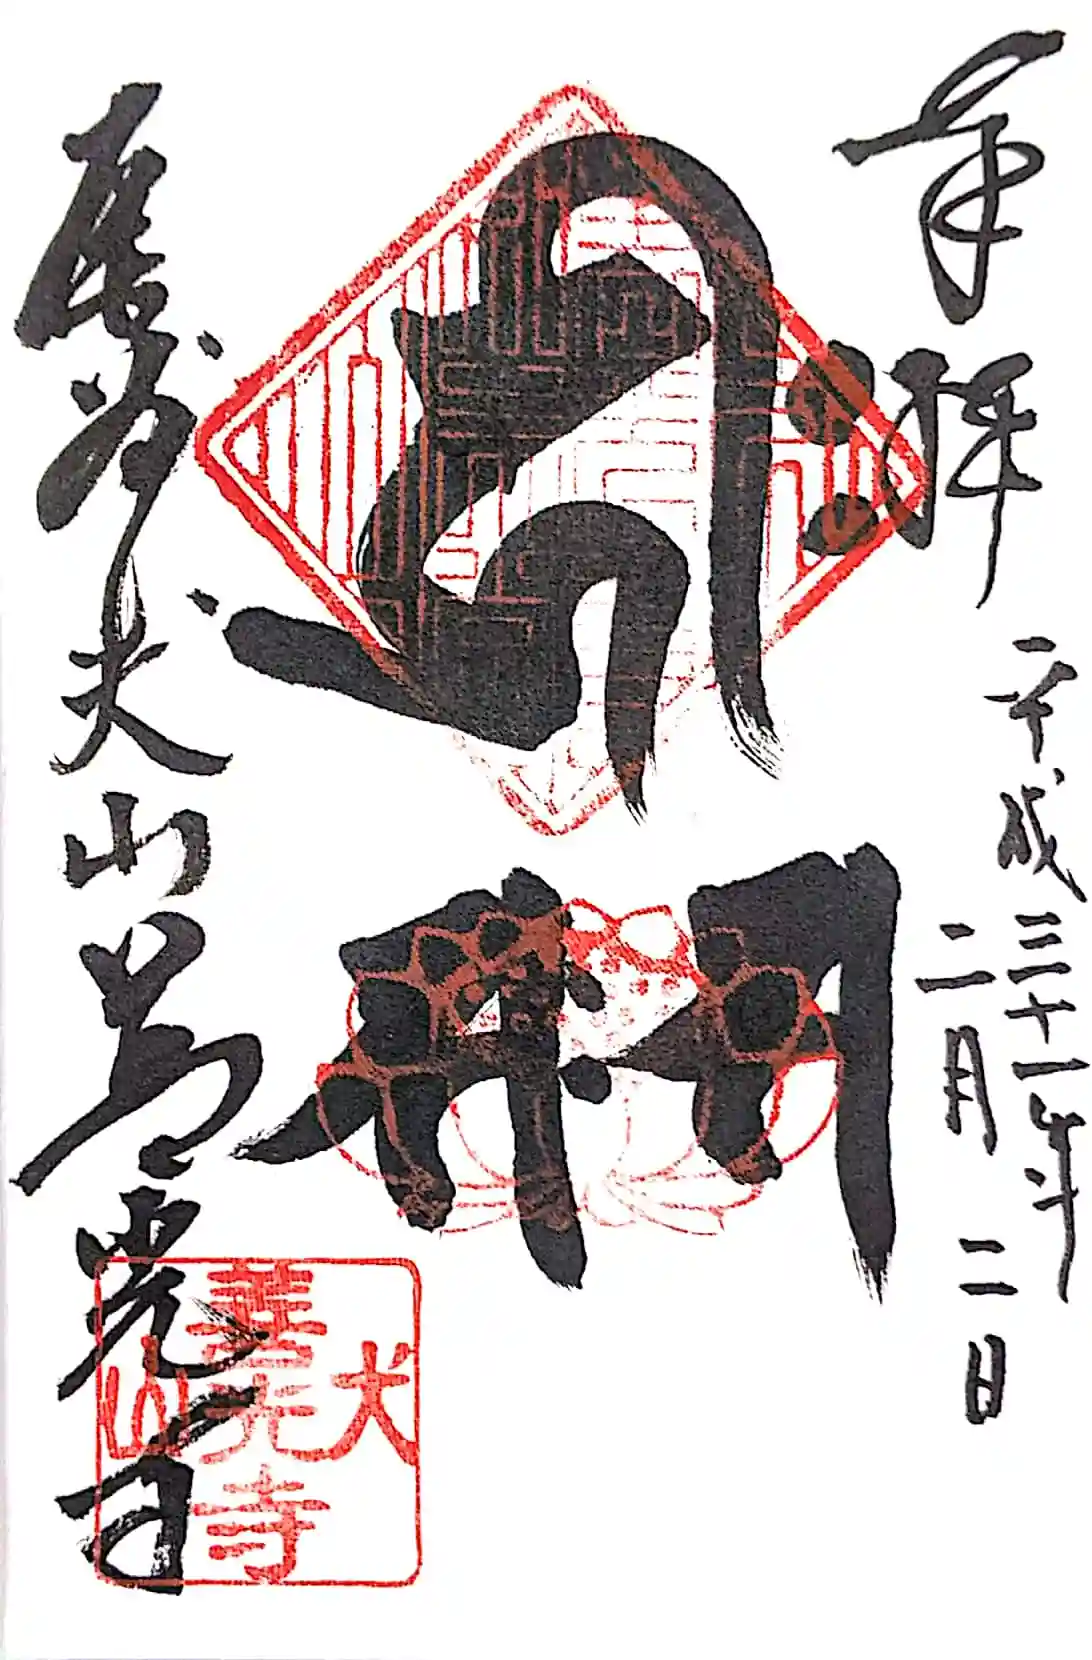 奉拝
平成三十一年
二月二日
尾州犬山善光寺
犬山
善光寺